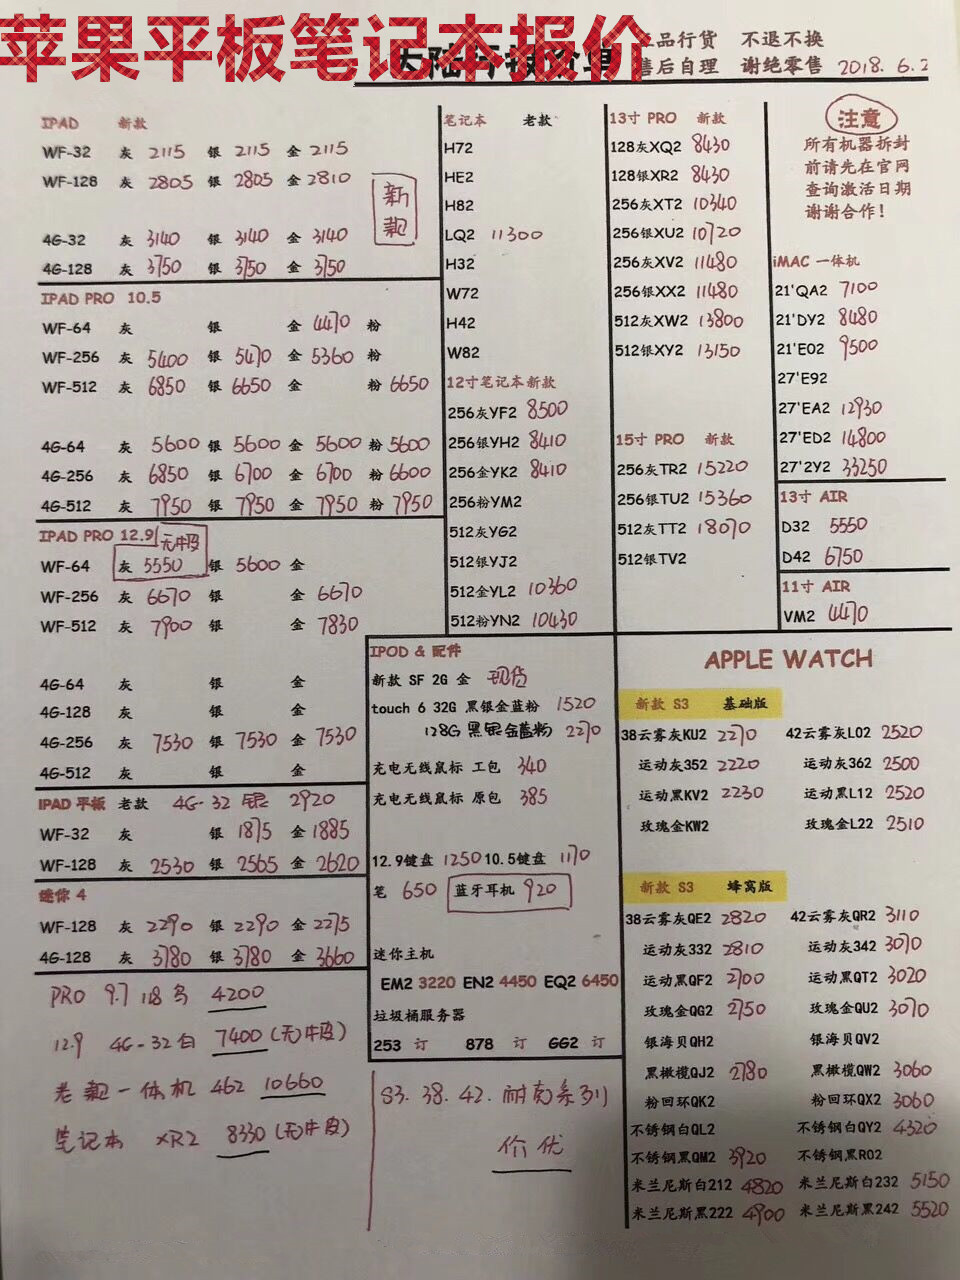 苹果平板笔记本报价
正品行货 不退不换
售后自理 谢绝零售 2018.6.2
IPAD 新款
WF-32 灰 2115 银 2115 金 2115
WF-128 灰 2805 银 2805 金 2810
新款
4G-32 灰 3140 银 3140 金 3140
4G-128 灰 3750 银 3750 金 3750
IPAD PRO 10.5
WF-64 灰 银 金 4470 粉
WF-256 灰 5400 银 5470 金 5360 粉
WF-512 灰 6850 银 6650 金 粉 6650
4G-64 灰 5600 银 5600 金 5600 粉 5600
4G-256 灰 6850 银 6700 金 6700 粉 6600
4G-512 灰 7950 银 7950 金 7950 粉 7950
IPAD PRO 12.9 无牛皮
WF-64 灰 5550 银 5600 金
WF-256 灰 6670 银 金 6670
WF-512 灰 7900 银 金 7830
4G-64 灰 银 金
4G-128 灰 银 金
4G-256 灰 7530 银 7530 金 7530
4G-512 灰 银 金
IPAD 平板 老款 4G-32 银 2920
WF-32 灰 银 1875 金 1885
WF-128 灰 2530 银 2565 金 2620
迷你 4
WF-128 灰 2290 银 2290 金 2275
4G-128 灰 3780 银 3780 金 3660
PRO 9.7 128 4200
12.9 4G-32白 7400 (无牛皮)
老款一体机 462 10660
笔记本 XR2 8330 (无牛皮)
笔记本 老款
H72
HE2
H82
LQ2 11300
H32
W72
H42
W82
12寸笔记本新款
256灰YF2 8500
256银YH2 8410
256金YK2 8410
256粉YM2
512灰YG2
512银YJ2
512金YL2 10360
512粉YN2 10430
13寸 PRO 新款
128灰XQ2 8430
128银XR2 8430
256灰XT2 10340
256银XU2 10720
256灰XV2 11480
256银XX2 11480
512灰XW2 13800
512银XY2 13150
15寸 PRO 新款
256灰TR2 15220
256银TU2 15360
512灰TT2 18070
512银TV2
注意
所有机器拆封
前请先在官网
查询激活日期
谢谢合作！
iMAC 一体机
21'QA2 7100
21'DY2 8480
21'E02 9500
27'E92
27'EA2 12930
27'ED2 14800
27'2Y2 33250
13寸 AIR
D32 5550
D42 6750
11寸 AIR
VM2 4470
IPOD & 配件
新款 SF 2G 金 现货
touch 6 32G 黑银金蓝粉 1520
128G 黑银金蓝粉 2270
充电无线鼠标 工包 340
充电无线鼠标 原包 385
12.9键盘 1250 10.5键盘 1170
笔 650 蓝牙耳机 920
迷你主机
EM2 3220 EN2 4450 EQ2 6450
垃圾桶服务器
253 订 878 订 GG2 订
S3.38.42.耐克系列
价优
APPLE WATCH
新款 S3 基础版
38云雾灰KU2 2270 42云雾灰L02 2520
运动灰352 2220 运动灰362 2500
运动黑KV2 2230 运动黑L12 2520
玫瑰金KW2 玫瑰金L22 2510
新款 S3 蜂窝版
38云雾灰QE2 2820 42云雾灰QR2 3110
运动灰332 2810 运动灰342 3070
运动黑QF2 2700 运动黑QT2 3020
玫瑰金QG2 2750 玫瑰金QU2 3070
银海贝QH2 银海贝QV2
黑橄榄QJ2 2780 黑橄榄QW2 3060
粉回环QK2 粉回环QX2 3060
不锈钢白QL2 不锈钢白QY2 4320
不锈钢黑QM2 3920 不锈钢黑R02
米兰尼斯白212 4820 米兰尼斯白232 5150
米兰尼斯黑222 4900 米兰尼斯黑242 5520